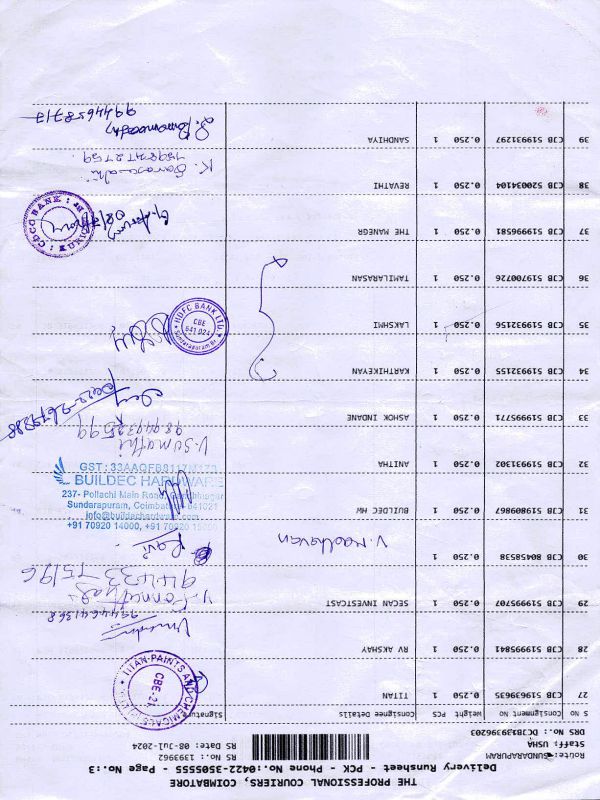 THE PROFESSIONAL COURIERS, COIMBATORE
Delivery Runsheet - PCK - Phone No.:0422-3505555 - Page No.:3
Route: SUNDARAPURAM
Staff: USHA RS No.: 1393962
DRS No.: RS Date: 08-Jul-2024
S No Consignment No Weight PCS Consignee Details Signature
27 CJB 519639635 0.250 1 TITAN
TITAN PAINTS AND
CBE-21.
28 CJB 519995841 0.250 1 RV AKSHAY
29 CJB 519995707 0.250 1 SECAN INVESTCAST
94433 75196
30 CJB 80458538 0.250 1 V. Madhavan Ravi
31 CJB 519809867 0.250 1 BUILDEC HW
GST:
BUILDEC HARDWARE
237- Pollachi Main Road,
Sundarapuram, Coimbatore - 641021
info@buildechardware
+91 70920 14000, +91 70920
32 CJB 519931302 0.250 1 ANITHA
V. Sumathi
33 CJB 519995771 0.250 1 ASHOK INDANE
34 CJB 519932155 0.250 1 KARTHIKEYAN
35 CJB 519932156 0.250 1 LAKSHMI
HDFC BANK LTD.
CBE
641 024
Sundarapuram Br.
36 CJB 519700726 0.250 1 TAMILARASAN
37 CJB 519996581 0.250 1 THE MANEGR
BANK
38 CJB 520034104 0.250 1 REVATHI
K.
39 CJB 519931297 0.250 1 SANDHIYA
9944658717